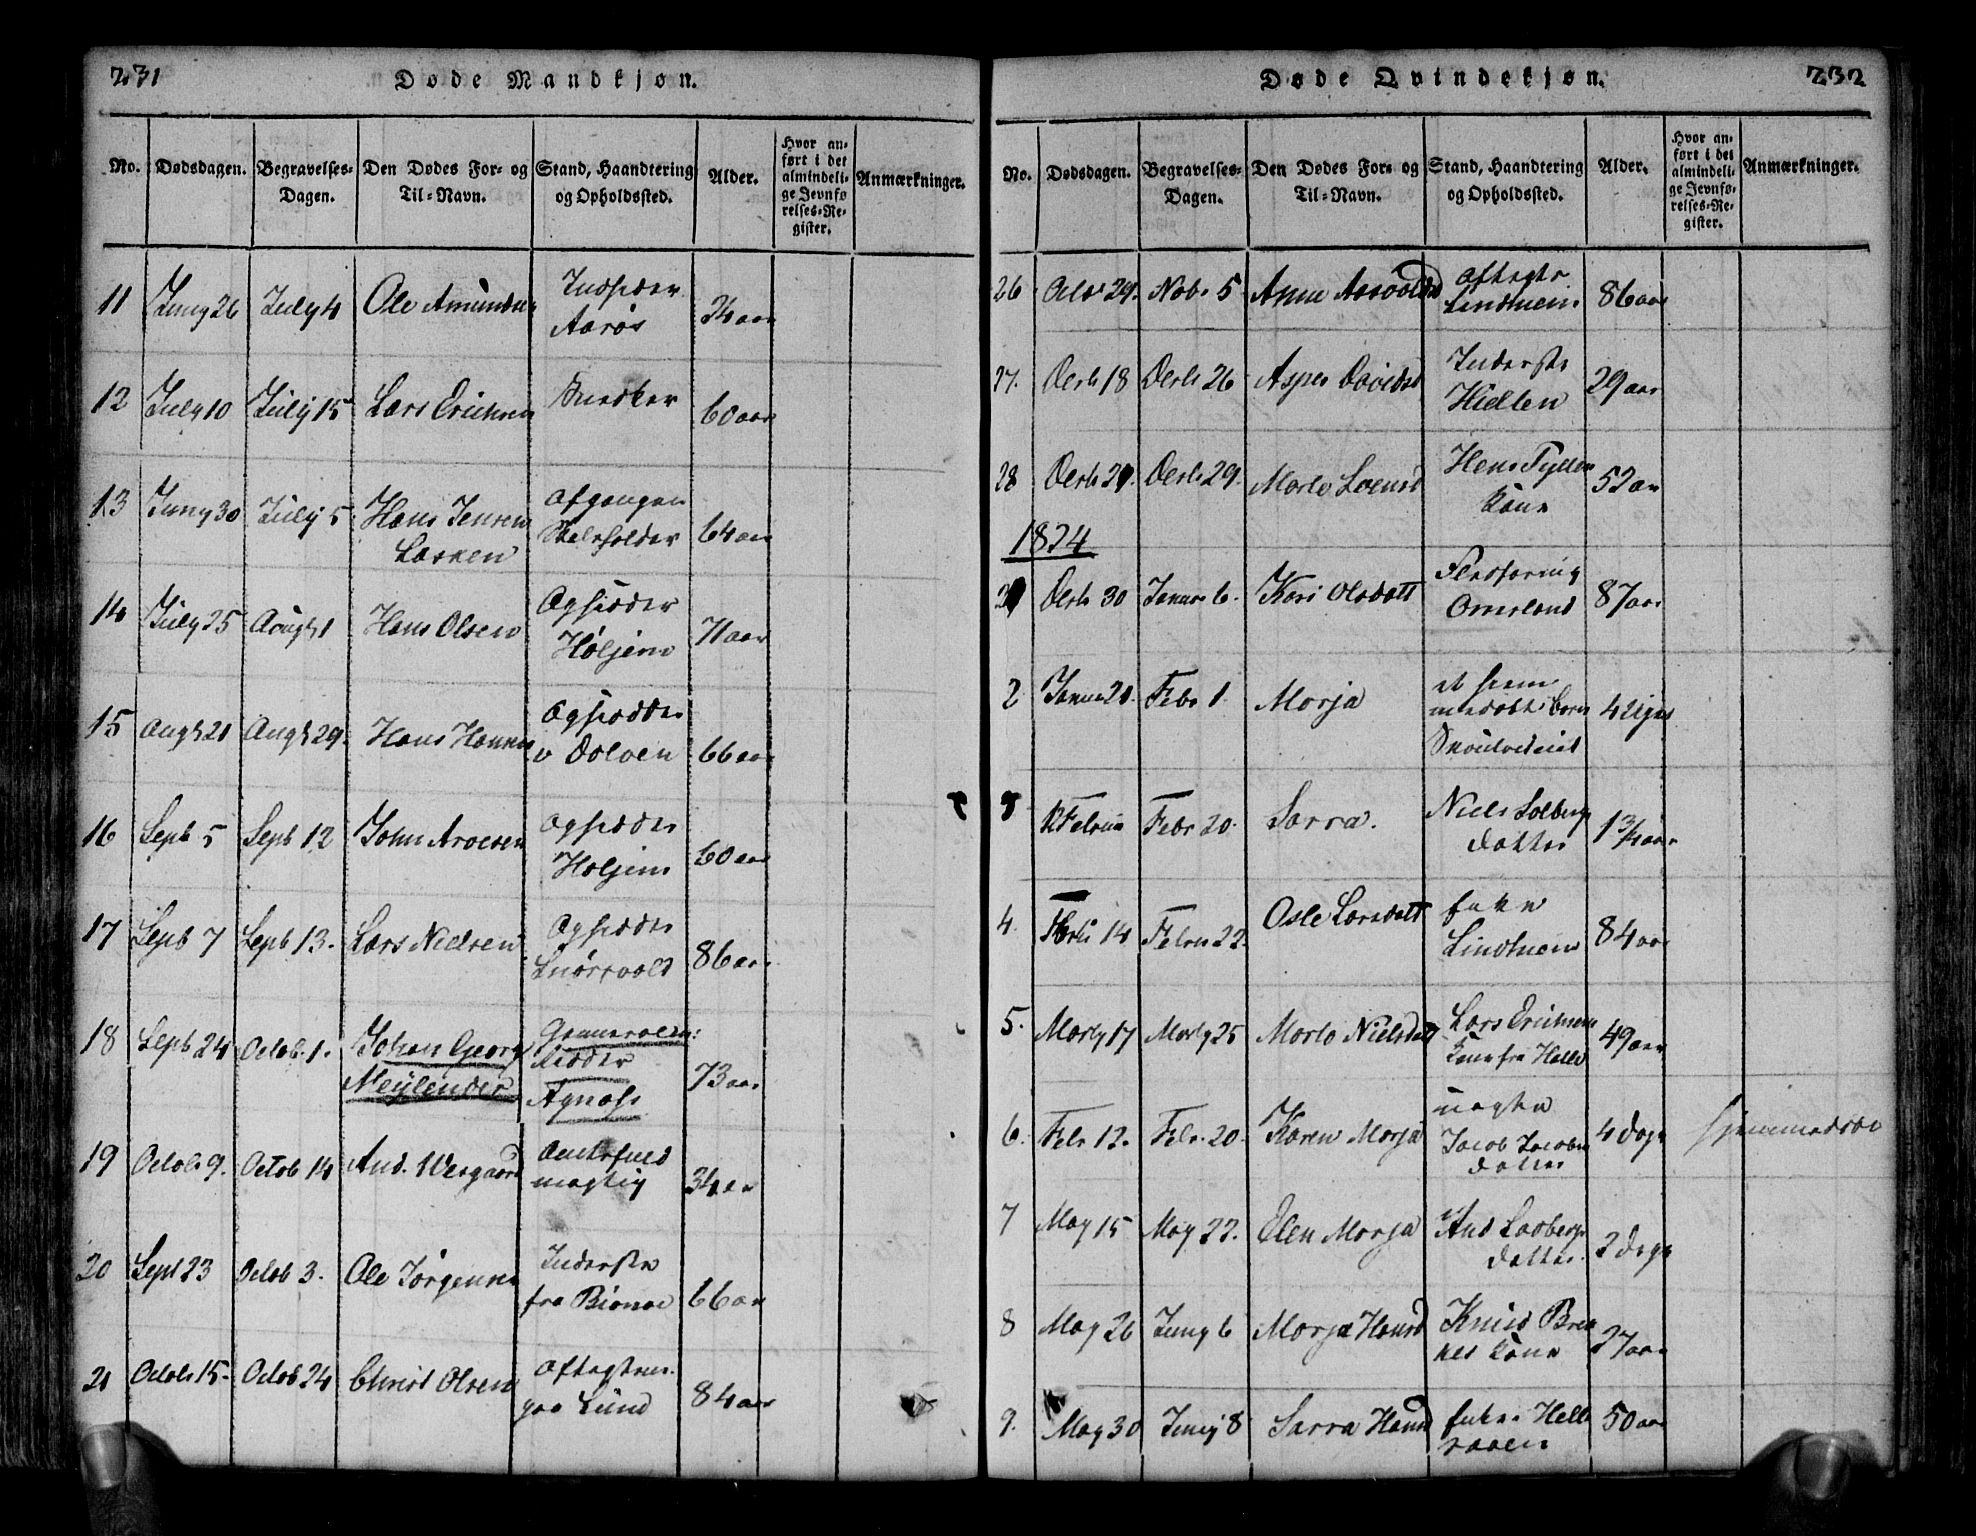 231
Døde Mandkjøn.
No. Dødsdagen. Begravelses-Dagen. Den Dødes For- og Til-Navn. Stand, Haandtering og Opholdssted. Alder. Hvor anført i det almindelige Jevnførelses-Register. Anmærkninger.
11 Juny 26 July 4 Ole Amundsen Indsidder Aarøs 24 aar
12 July 10 July 15 Lars Erichsen Snedker 60 aar
13 Juny 30 July 5 Hans Jensen Lasken Afgangen 64 aar
14 July 25 Augst 1 Hans Olsen Opsidder Høljem 71 aar
15 Augst 21 Augst 29. Hans Hansen Opsidder v Dolven 66 aar
16 Septb 5 Septb 12 John Arvesen Opsidder Holjem 60 aar
17 Septb 7 Septb 13. Lars Nielsen Opsidder Snørvold 86 aar
18 Septb 24 Octob. 1. Johan Georg Meylender Agnæs 73 aar
19 Octob 9. Octob 14 And. Wergaard 34 aar
20 Sept 23 Octob 3. Ole Jørgensen Inderste fra Biønnes 66 aar
21 Octob 15. Octob 24 Christ Olsen Aftægtsm. paa Lund 84 aar
232
Døde Qvindekjøn.
No. Dødsdagen. Begravelses-Dagen. Den Dødes For- og Til-Navn. Stand, Haandtering og Opholdssted. Alder. Hvor anført i det almindelige Jevnførelses-Register. Anmærkninger.
26 Octb 29. Novb 5 Anne Aasvoldsd Aftægts Lindhiem 86 aar
27. Decb 18 Decb 26 Asper Davidsd Inderste Hielten 29 aar
28 Decb 21 Decb 29. Marte Loensd Hans Fyllen Kone 52 aar
1824
Decb 30 Januar 6. Kari Olsdatt Omsland 87 aar
2 Januar 21. Febr 1. Marja 4 Uger
3 Febr 20. Sarra. Niels Solberg Datter 1 3/4 aar
4. 14 Febr 22. Osle Larsdatt Enke Lindhiem 84 aar
5. Marty 17 Marty 25 Marte Nielsdatt Lars Erichsen Kone fra Helle 49 aar
6. Febr 12. Febr. 20. Karen Marja Jacob Jacobsen Datter 4 Dage Hjemmedøbt
7 May 15 May 22. Elen Marja And Datter. 2 Dage
8 May 26 Juny 6 Marja Hansd Knud Brekkes Kone 27 aar
9. May 30 Juny 8 Sarra Hansd Enke 50 aar